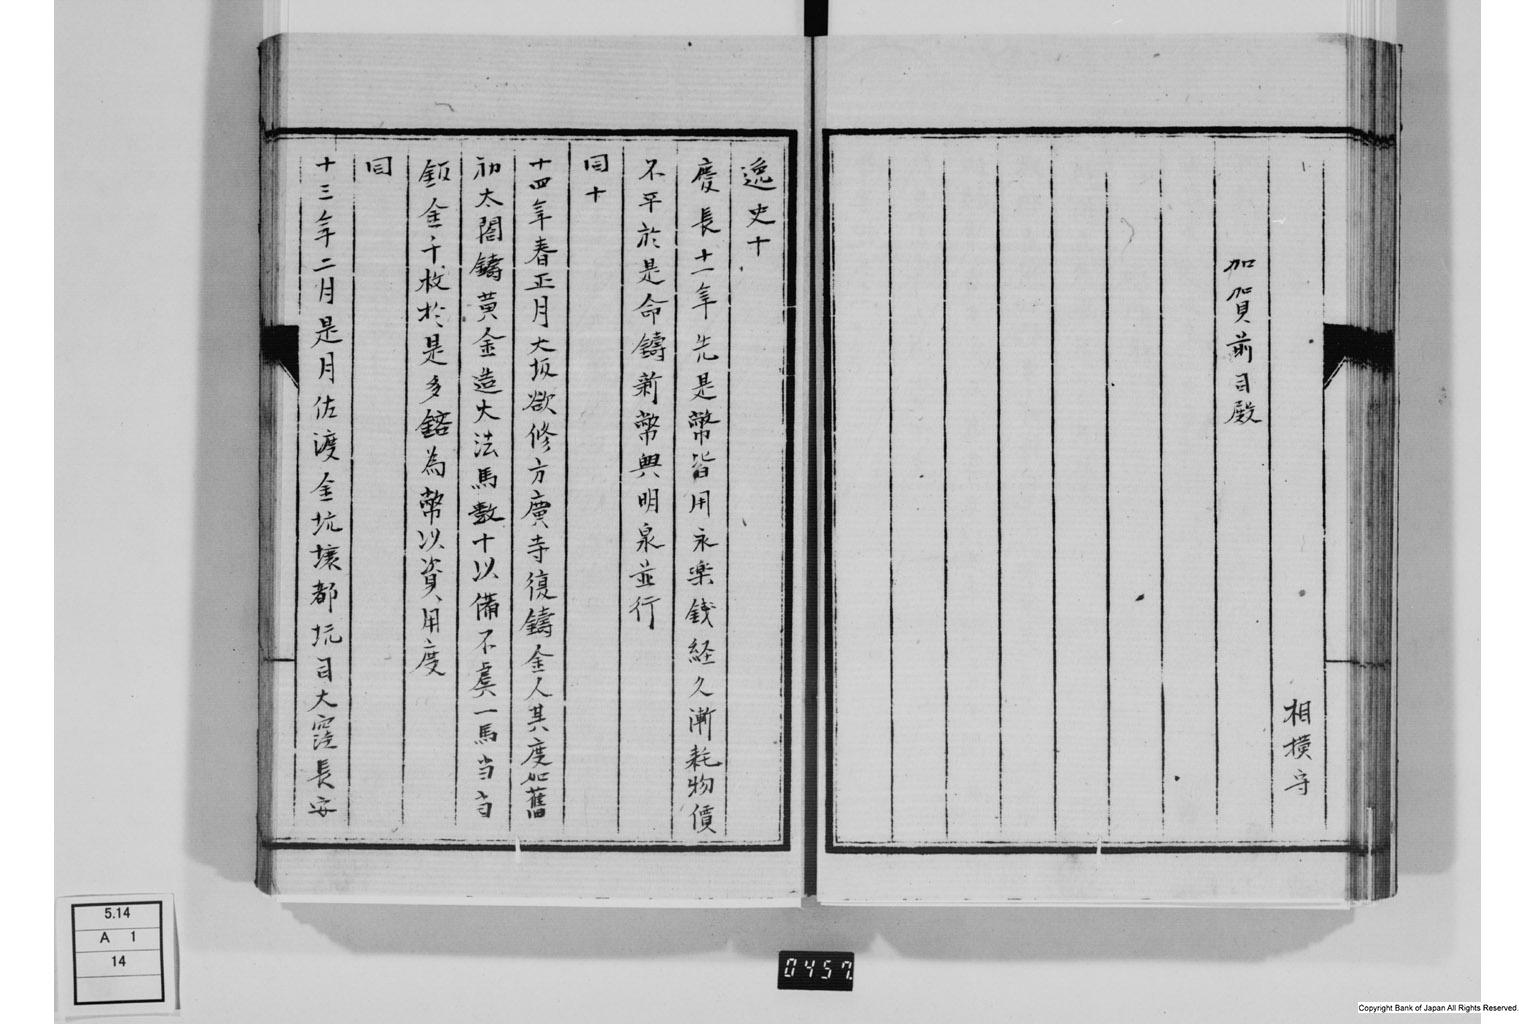 相摸守
加賀前目殿
逸史十
慶長十一年先是幣皆用永楽錢経久漸耗物價
不平於是命鑄新幣與明泉並行
同十
十四年春正月大坂欲修方廣寺復鑄金人其度如舊
初太閤鑄黄金造大法馬数十以備不虞一馬当
鈑金千枚於是多鎔為幣以資用度
同
十三年二月是月佐渡金坑壊都坑目大窪長安
5.14
A 1
14
0457
Copyright Bank of Japan All Rights Reserved.